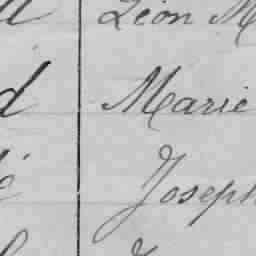 Léon
d Marie
é Joseph